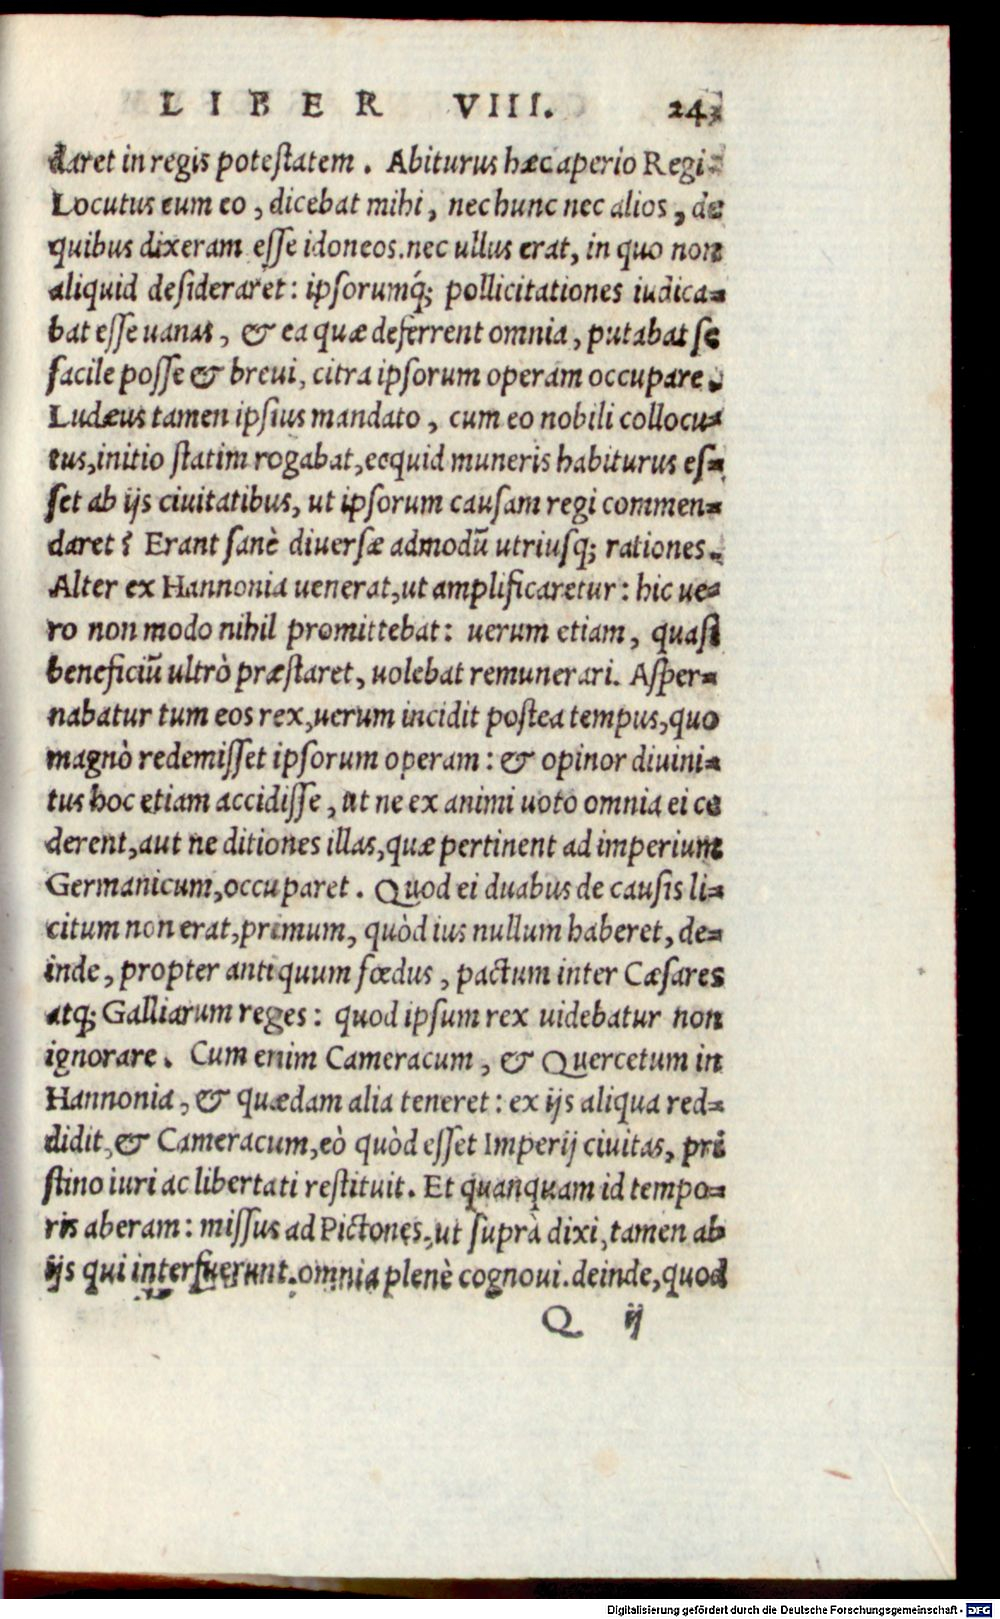 LIBER VIII. 243
daret in regis potestatem. Abiturus hæc aperio Regi.
Locutus cum eo, dicebat mihi, nec hunc nec alios, de
quibus dixeram esse idoneos. nec ullus erat, in quo non
aliquid desideraret: ipsorumq́; pollicitationes iudica-
bat esse uanas, & ea quæ deferrent omnia, putabat se
facile posse & breui, citra ipsorum operam occupare.
Ludæus tamen ipsius mandato, cum eo nobili collocu-
tus, initio statim rogabat, ecquid muneris habiturus es-
set ab ijs ciuitatibus, ut ipsorum causam regi commen-
daret? Erant sanè diuersæ admodū utriusq; rationes.
Alter ex Hannonia uenerat, ut amplificaretur: hic ue-
ro non modo nihil promittebat: uerum etiam, quasi
beneficiū ultrò præstaret, uolebat remunerari. Asper-
nabatur tum eos rex, uerum incidit postea tempus, quo
magnò redemisset ipsorum operam: & opinor diuini-
tus hoc etiam accidisse, ut ne ex animi uoto omnia ei ce
derent, aut ne ditiones illas, quæ pertinent ad imperium
Germanicum, occuparet. Quod ei duabus de causis li-
citum non erat, primum, quòd ius nullum haberet, de-
inde, propter antiquum fœdus, pactum inter Cæsares
atq; Galliarum reges: quod ipsum rex uidebatur non
ignorare. Cum enim Cameracum, & Quercetum in
Hannonia, & quædam alia teneret: ex ijs aliqua red-
didit, & Cameracum, eò quòd esset Imperij ciuitas, pri
stino iuri ac libertati restituit. Et quanquam id tempo-
ris aberam: missus ad Pictones, ut suprà dixi, tamen ab
ijs qui interfuerunt. omnia plenè cognoui. deinde, quod
Q ij
Digitalisierung gefördert durch die Deutsche Forschungsgemeinschaft - DFG